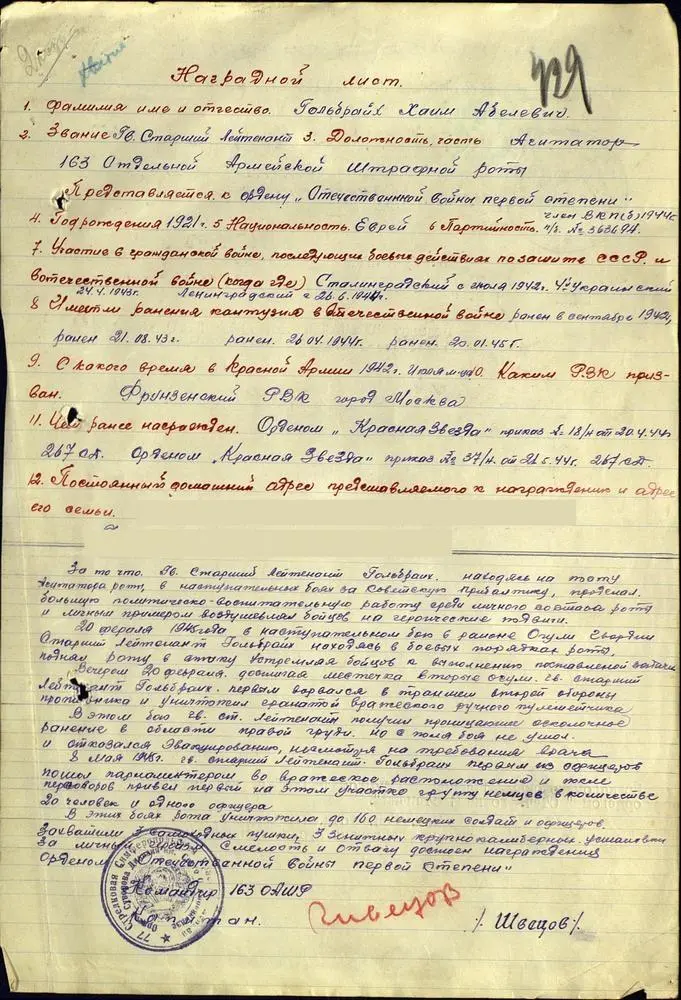 429
Наградной лист.
1. Фамилия име и отчество. Гольбрайх Хаим Абелевич.
2. Звание Гв. Старший Лейтенант 3. Должность, часть Агитатор
163 Отдельной Армейской Штрафной роты
Представляется к ордену „Отечественной войны первой степени"
член ВКП(б) 1944г.
4. Год рождения 1921 г. 5 Национальность. Еврей 6 Партийность. п/б. № 363694.
7. Участие в гражданской войне, последующих боевых действиях по защите СССР. и
в отечественной войне (когда где) Сталинградский с июля 1942г. 4й Украинский
24.4.1943г. Ленинградский с 26.6.1944г.
8 Имеет ли ранения кантузия в Отечественной войне ранен в сентябре 1942г,
ранен 21.08.43г. ранен. 26.04.1944г. ранен. 20.01.45г.
9. С какого время в Красной Армии 1942г. 10. Каким РВК приз-
ван. Фрунзенский РВК город Москва
11. Чем ранее награжден. Орденом „Красная Звезда" приказ № 18/н от 20.4.44г
267 сд. Орденом „Красная Звезда" приказ № 37/н. от 21.5.44г. 267 сд.
12. Постоянный домашний адрес представляемого к награждению и адрес
его семьи.
За то что. Гв. Старший Лейтенант Гольбраих. находясь на посту
Агитатора роты, в наступательных боях за Советскую Прибалтику, проделал.
большую политическо-воспитательную работу среди личного состава роты
и личным примером воодушевлял бойцов на героические подвиги.
20 февраля 1945 года в наступательном бою в районе Гвардии
Старший Лейтенант Гольбраих находясь в боевых порядках роты,
поднял роту в атаку устремляя бойцов к выполнению поставленной задачи
Вечером 20 февраля. достигая местечка вторые гв. старший
Лейтенант Гольбраих. первым ворвался в траншеи второй обороны
противника и уничтожил гранатой вражеского ручного пулеметчика
В этом бою гв. ст. Лейтенант получил проницающие осколочное
ранение в области правой груди. но с поля боя не ушол.
и отказался эвакуированию, несмотря на требования врача
8 Мая 1945г. гв. старший Лейтенант. Гольбраих первым из офицеров
пошол парламентером во вражеское расположение и после
переговоров привел первый на этом участке группу немцев в количестве
20 человек и одного офицера
В этих боях рота уничтожила до 160 немецких солдат и офицеров.
Захватили 3 самоходных пушки, 3 зенитных крупнокалиберных установки
За личный героизм смелость и отвагу достоен награждения
Орденом „Отечественной войны первой степени"
Командир 163 ОАШР
Капитан. Швецов /. Швецов/.
77 Стрелковая